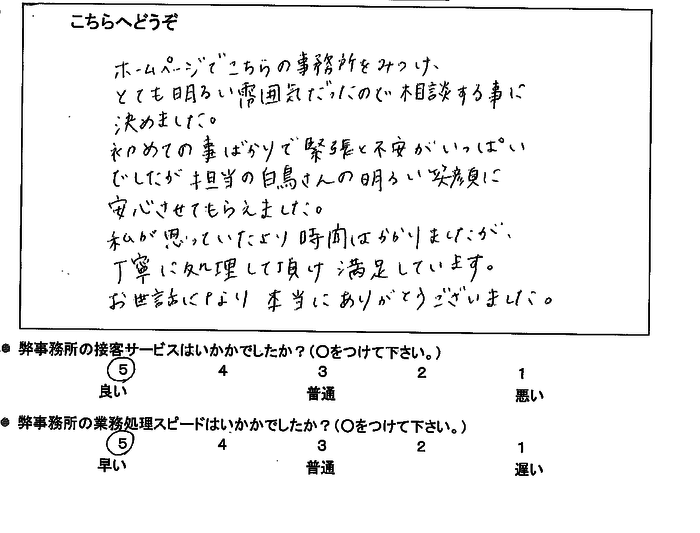 こちらへどうぞ
ホームページでこちらの事務所をみつけ、
とても明るい雰囲気だったので相談する事に
決めました。
初めての事ばかりで緊張と不安がいっぱい
でしたが担当の白鳥さんの明るい笑顔に
安心させてもらえました。
私が思っていたより時間はかかりましたが、
丁寧に処理して頂け満足しています。
お世話になり本当にありがとうございました。
● 弊事務所の接客サービスはいかかでしたか？（〇をつけて下さい。）
5 4 3 2 1
良い 普通 悪い
● 弊事務所の業務処理スピードはいかかでしたか？（〇をつけて下さい。）
5 4 3 2 1
早い 普通 遅い